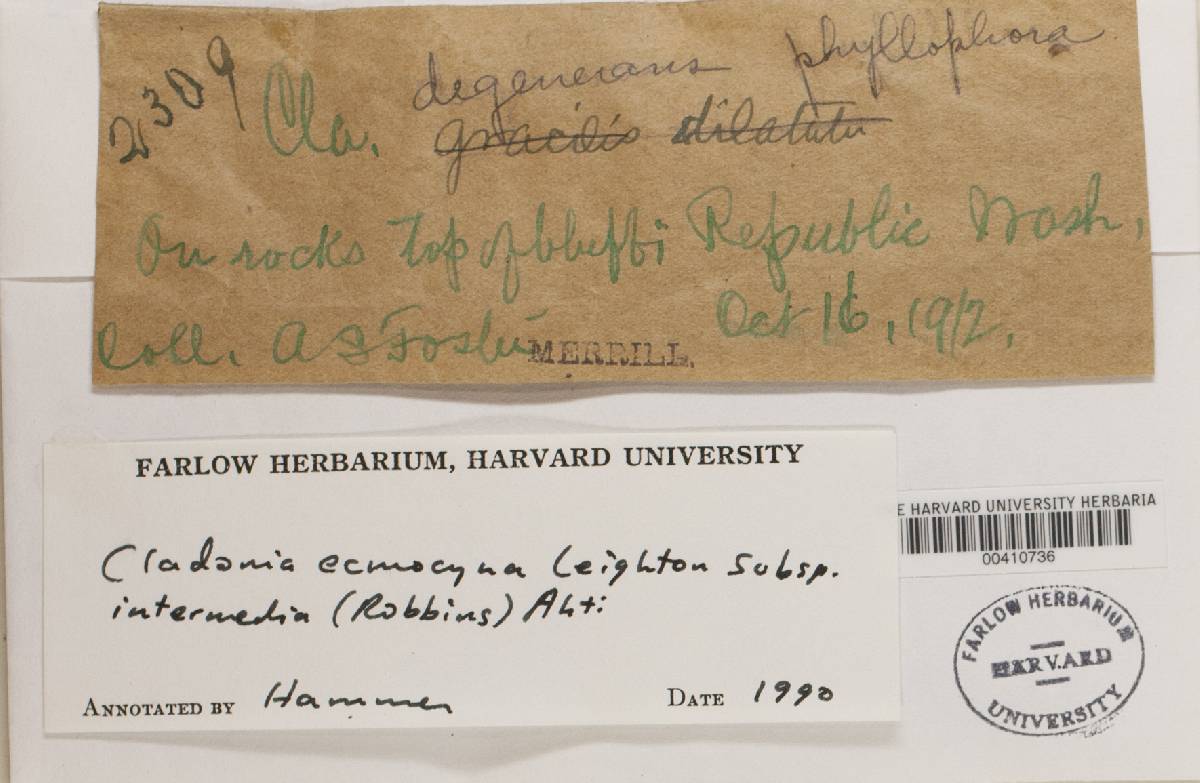 2309 Cla. degenerans phyllophora
gracilis dilatata
On rocks top of bluffs Republic Wash,
Coll. A S Foster Oct 16, 1912.
MERRILL.
FARLOW HERBARIUM, HARVARD UNIVERSITY
Cladonia ecmocyna Leighton Subsp.
intermedia (Robbins) Ahti
ANNOTATED BY Hammer DATE 1990
E HARVARD UNIVERSITY HERBARIA
00410736
FARLOW HERBARIUM
HARVARD
UNIVERSITY